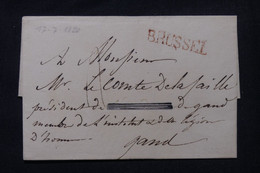 BRUSSEL
A Monsieur
Mr. Le Comte de la faille
président de de gand
membre de l'institut et de la légion
D'honn
gand